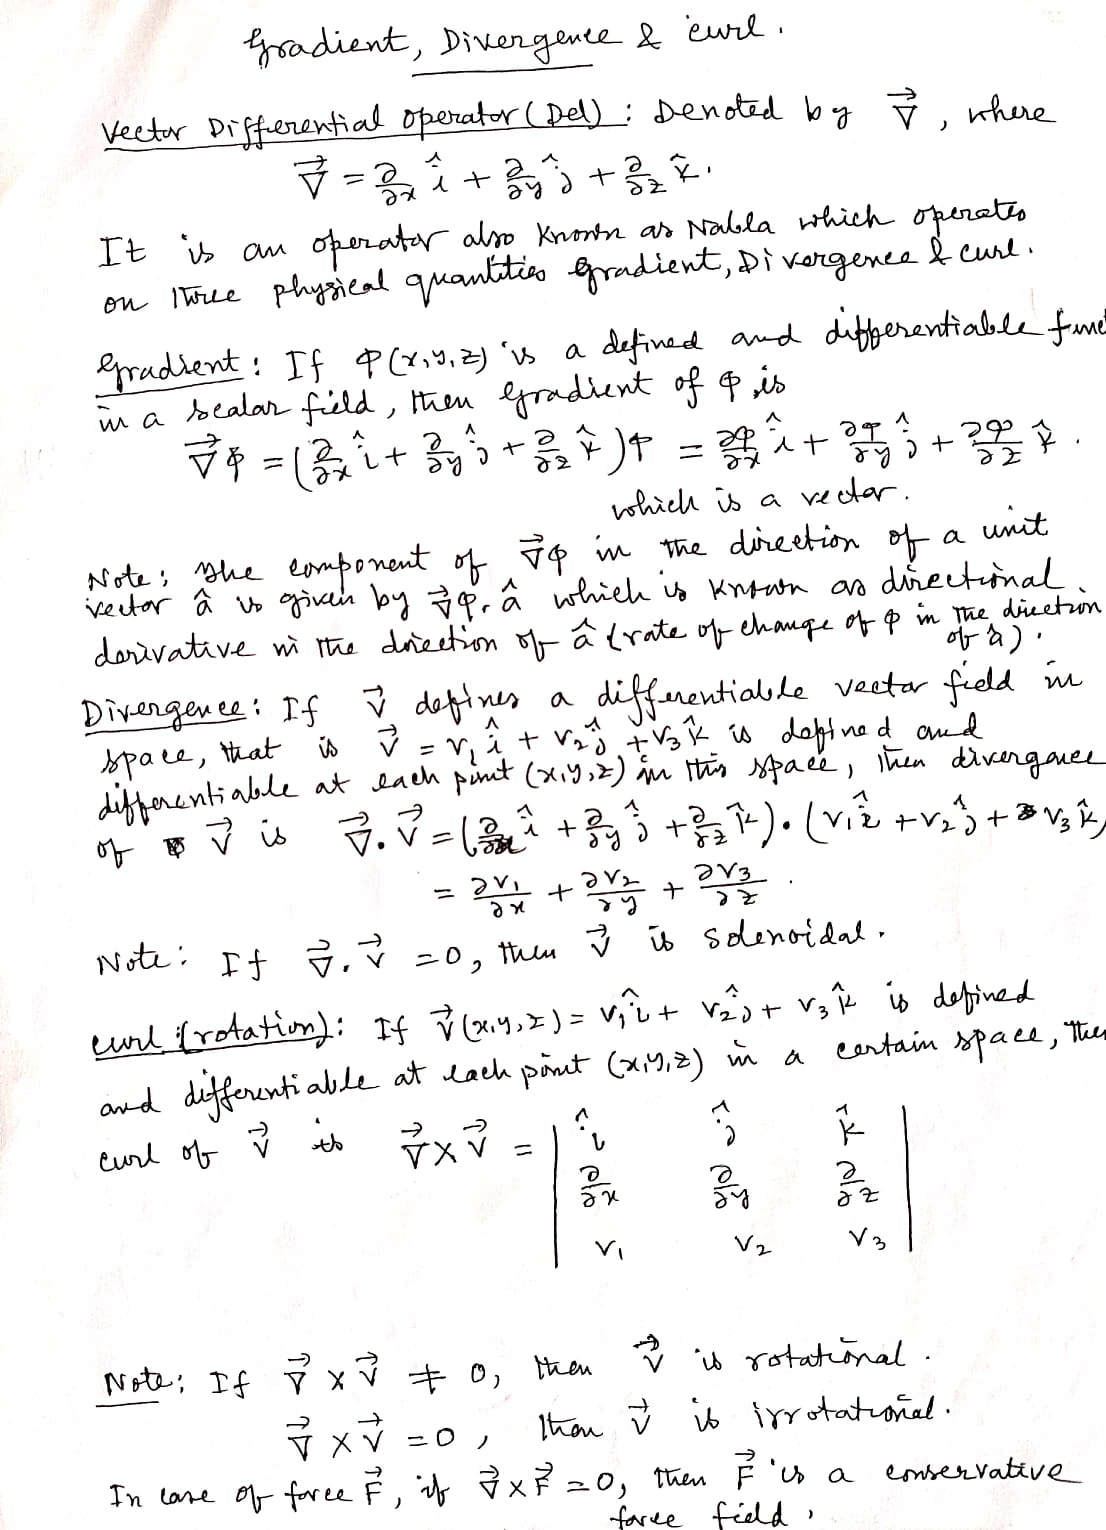 Gradient, Divergence & curl.
Vector Differential operator (Del) : Denoted by ∇⃗ , where
∇⃗ = ∂/∂x î + ∂/∂y ĵ + ∂/∂z k̂.
It is an operator also known as Nabla which operates
on three physical quantities Gradient, Divergence & curl.
Gradient : If φ(x,y,z) is a defined and differentiable func
in a scalar field, then Gradient of φ is
∇⃗φ = (∂/∂x î + ∂/∂y ĵ + ∂/∂z k̂)φ = ∂φ/∂x î + ∂φ/∂y ĵ + ∂φ/∂z k̂.
which is a vector.
Note: The component of ∇⃗φ in the direction of a unit
vector â is given by ∇⃗φ.â which is known as directional
derivative in the direction of â (rate of change of φ in the direction
of â).
Divergence: If v⃗ defines a differentiable vector field in
space, that is v⃗ = v₁ î + v₂ ĵ + v₃ k̂ is defined and
differentiable at each point (x,y,z) in this space, then divergence
of v⃗ is ∇⃗.v⃗ = (∂/∂x î + ∂/∂y ĵ + ∂/∂z k̂).(v₁ î + v₂ ĵ + v₃ k̂)
= ∂v₁/∂x + ∂v₂/∂y + ∂v₃/∂z.
Note: If ∇⃗.v⃗ = 0, then v⃗ is solenoidal.
curl (rotation): If v⃗(x,y,z) = v₁ î + v₂ ĵ + v₃ k̂ is defined
and differentiable at each point (x,y,z) in a certain space, then
curl of v⃗ is ∇⃗ × v⃗ = | î ĵ k̂ |
| ∂/∂x ∂/∂y ∂/∂z |
| v₁ v₂ v₃ |
Note: If ∇⃗ × v⃗ ≠ 0, then v⃗ is rotational.
∇⃗ × v⃗ = 0, then v⃗ is irrotational.
In case of force F⃗, if ∇⃗ × F⃗ = 0, then F⃗ is a conservative
force field,